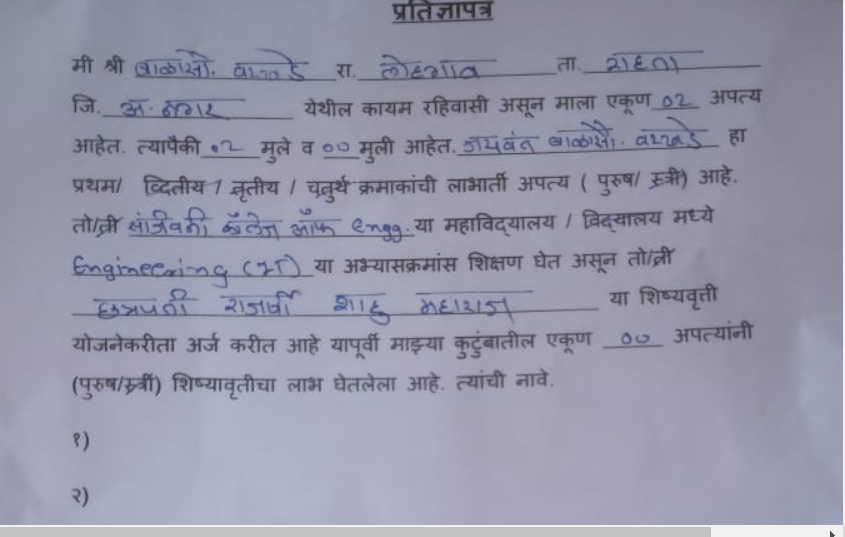 प्रतिज्ञापत्र
मी श्री बाळासो. वरखडे रा. लोहगाव ता. राहता
जि. अ. नगर येथील कायम रहिवासी असून माला एकूण 02 अपत्य
आहेत. त्यापैकी ०२ मुले व ०० मुली आहेत. जयवंत बाळासो. वरखडे हा
प्रथम/ व्दितीय / तृतीय / चतुर्थ क्रमाकांची लाभार्ती अपत्य ( पुरुष/ स्त्री) आहे.
तो/त्री सांजीवनी कॅालेज ऑफ Engg. या महाविद्यालय / विद्यालय मध्ये
Engineering (IT) या अभ्यासक्रमांस शिक्षण घेत असून तो/त्री
छत्रपती राजर्षी शाहु महाराज या शिष्यवृत्ती
योजनेकरीता अर्ज करीत आहे यापूर्वी माझ्या कुटुंबातील एकूण ०० अपत्यांनी
(पुरुष/स्त्री) शिष्यावृतीचा लाभ घेतलेला आहे. त्यांची नावे.
१)
२)